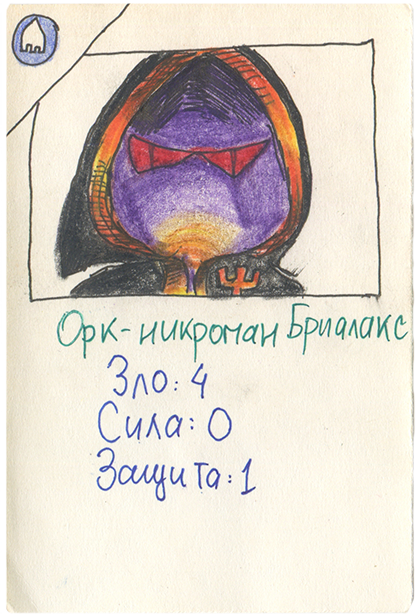 Орк-никроман Бриалакс
Зло: 4
Сила: 0
Защита: 1